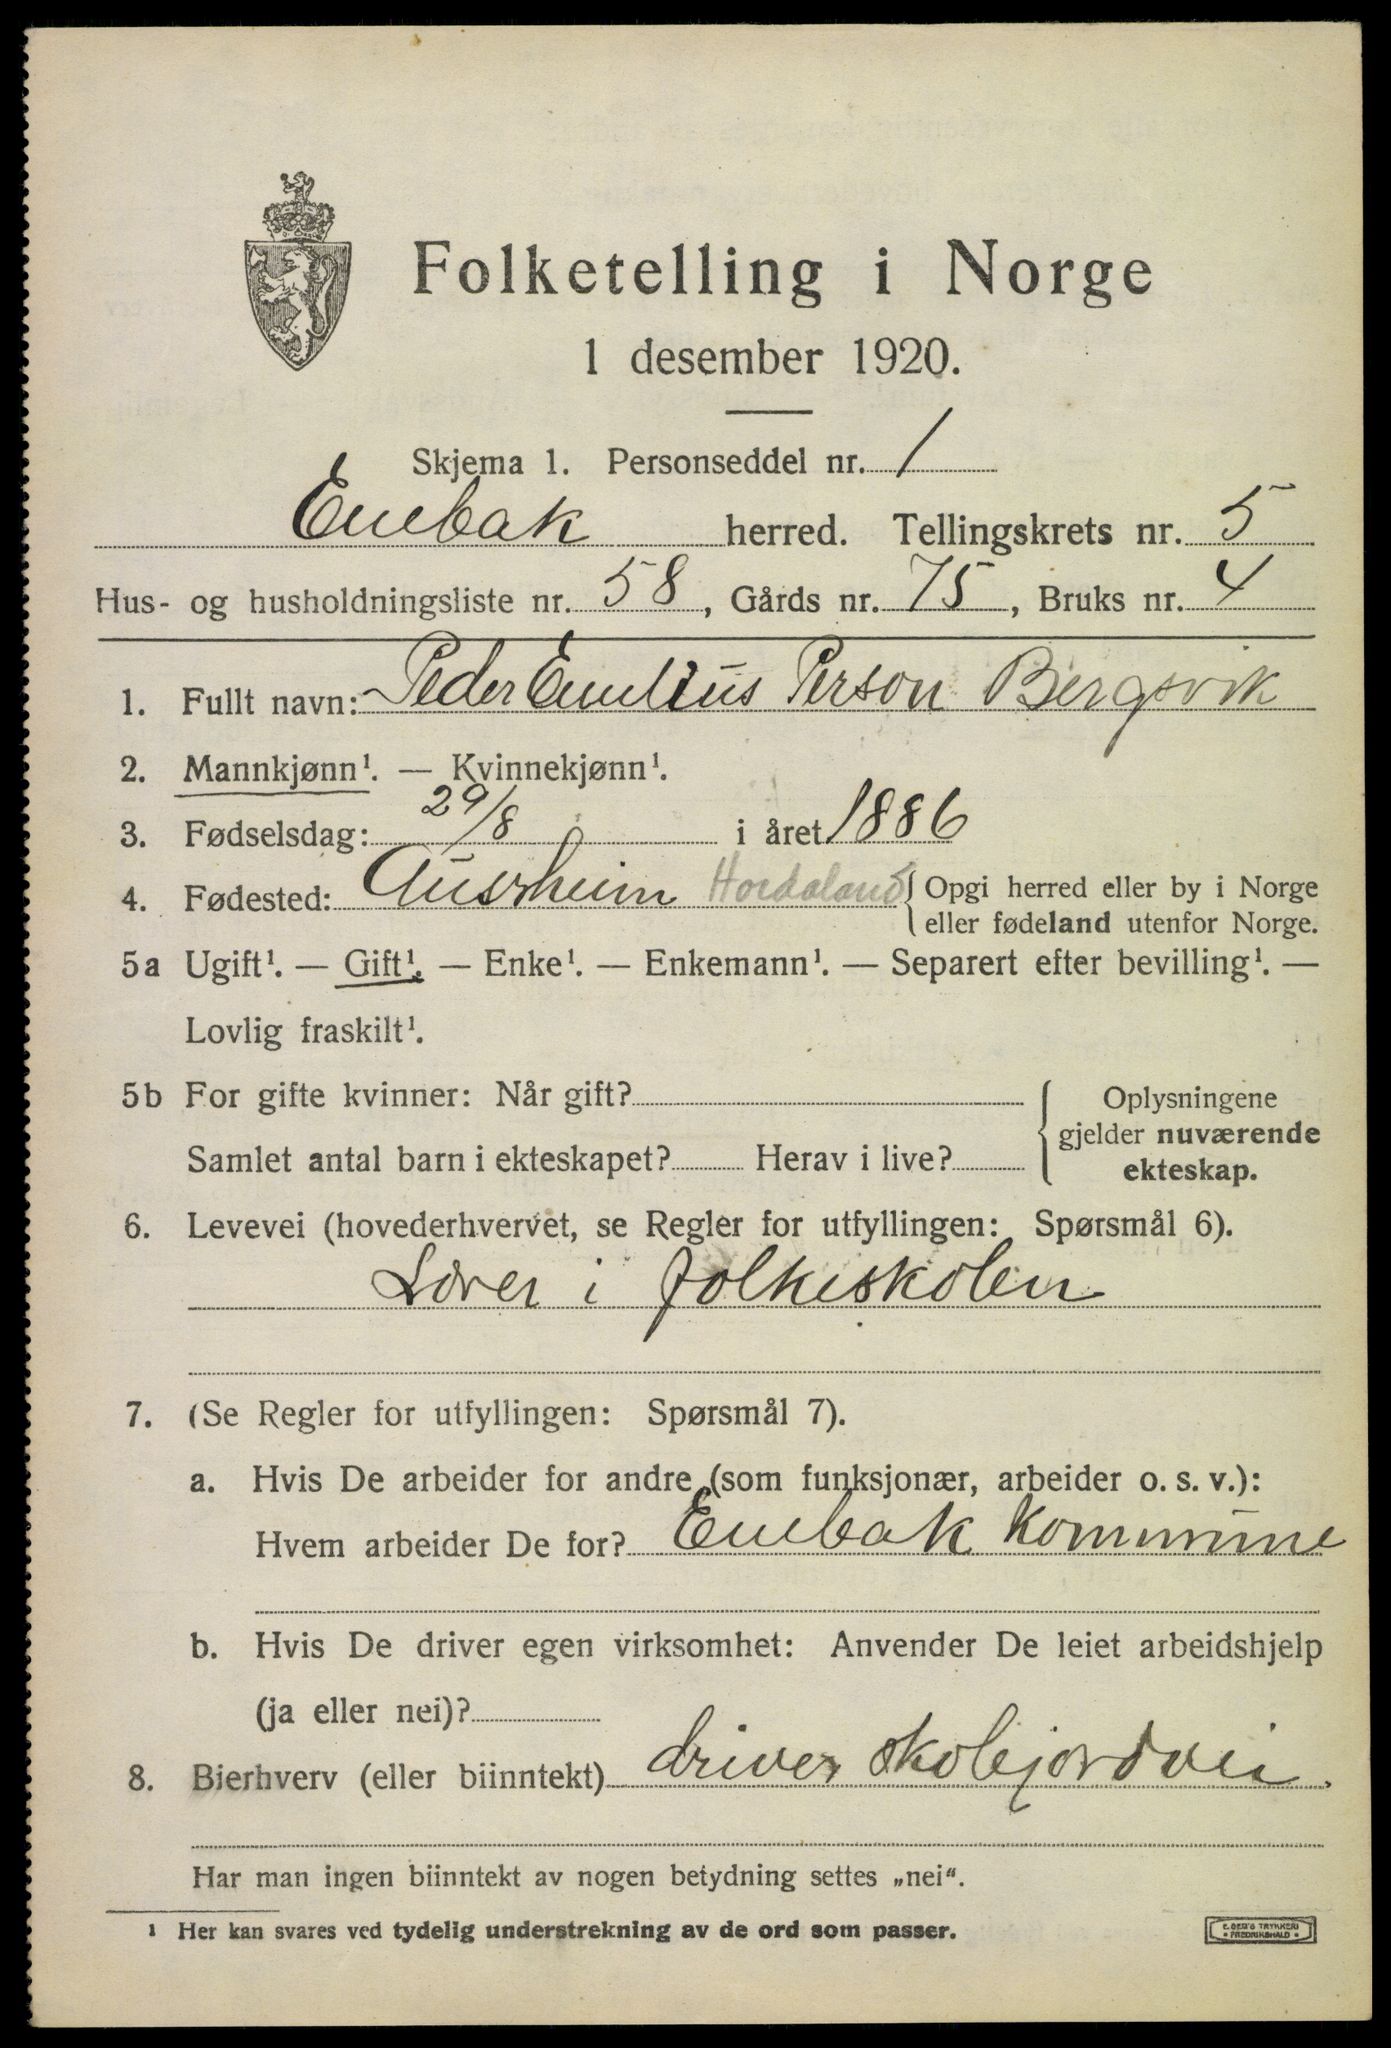 Folketelling i Norge
1 desember 1920.
Skjema 1. Personseddel nr. 1
Enebak herred. Tellingskrets nr. 5
Hus- og husholdningsliste nr. 58, Gårds nr. 75, Bruks nr. 4
1. Fullt navn: Peder Emelius Person Bergsvik
2. Mannkjønn¹. — Kvinnekjønn¹.
3. Fødselsdag: 29/8 i året 1886
4. Fødested: Austrheim Hordaland { Opgi herred eller by i Norge
eller fødeland utenfor Norge.
5a Ugift¹. — Gift¹. — Enke¹. — Enkemann¹. — Separert efter bevilling¹. —
Lovlig fraskilt¹.
5b For gifte kvinner: Når gift? { Oplysningene
gjelder nuværende
Samlet antal barn i ekteskapet? Herav i live?
ekteskap.
6. Levevei (hovederhvervet, se Regler for utfyllingen: Spørsmål 6).
Lærer i folkeskolen
7. (Se Regler for utfyllingen: Spørsmål 7).
a. Hvis De arbeider for andre (som funksjonær, arbeider o. s. v.):
Hvem arbeider De for? Enebak Kommune
b. Hvis De driver egen virksomhet: Anvender De leiet arbeidshjelp
(ja eller nei)?
8. Bierhverv (eller biinntekt) driver skolejordvei.
Har man ingen biinntekt av nogen betydning settes „nei“.
1 Her kan svares ved tydelig understrekning av de ord som passer.
E. SEM'S TRYKKERI
FREDRIKSHALD